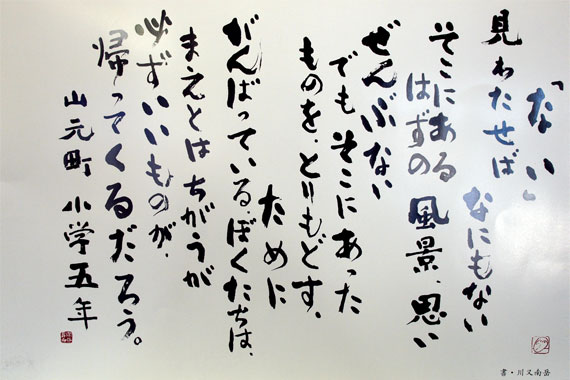 「ない」
見わたせば
なにもない
そこにある
はずの風景、思い
ぜんぶない
でもそこにあった
ものを、とりもどす、
ために
がんばっている、ぼくたちは、
まえとはちがうが
必ずいいものが、
帰ってくるだろう。
山元町 小学五年
書・川又南岳